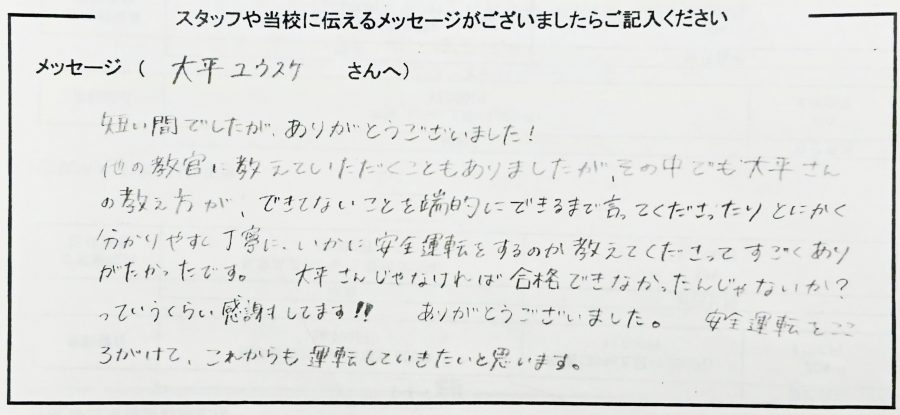 スタッフや当校に伝えるメッセージがございましたらご記入ください
メッセージ ( 大平ユウスケ さんへ)
短い間でしたが、ありがとうございました!
他の教官に教えていただくこともありましたが、その中でも大平さん
の教え方が、できてないことを端的にできるまで言ってくださったりとにかく
分かりやすく丁寧に、いかに安全運転をするのか教えてくださってすごくあり
がたかったです。 大平さんじゃなければ合格できなかったんじゃないか?
っていうくらい感謝してます!! ありがとうございました。 安全運転をここ
ろがけて、これからも運転していきたいと思います。